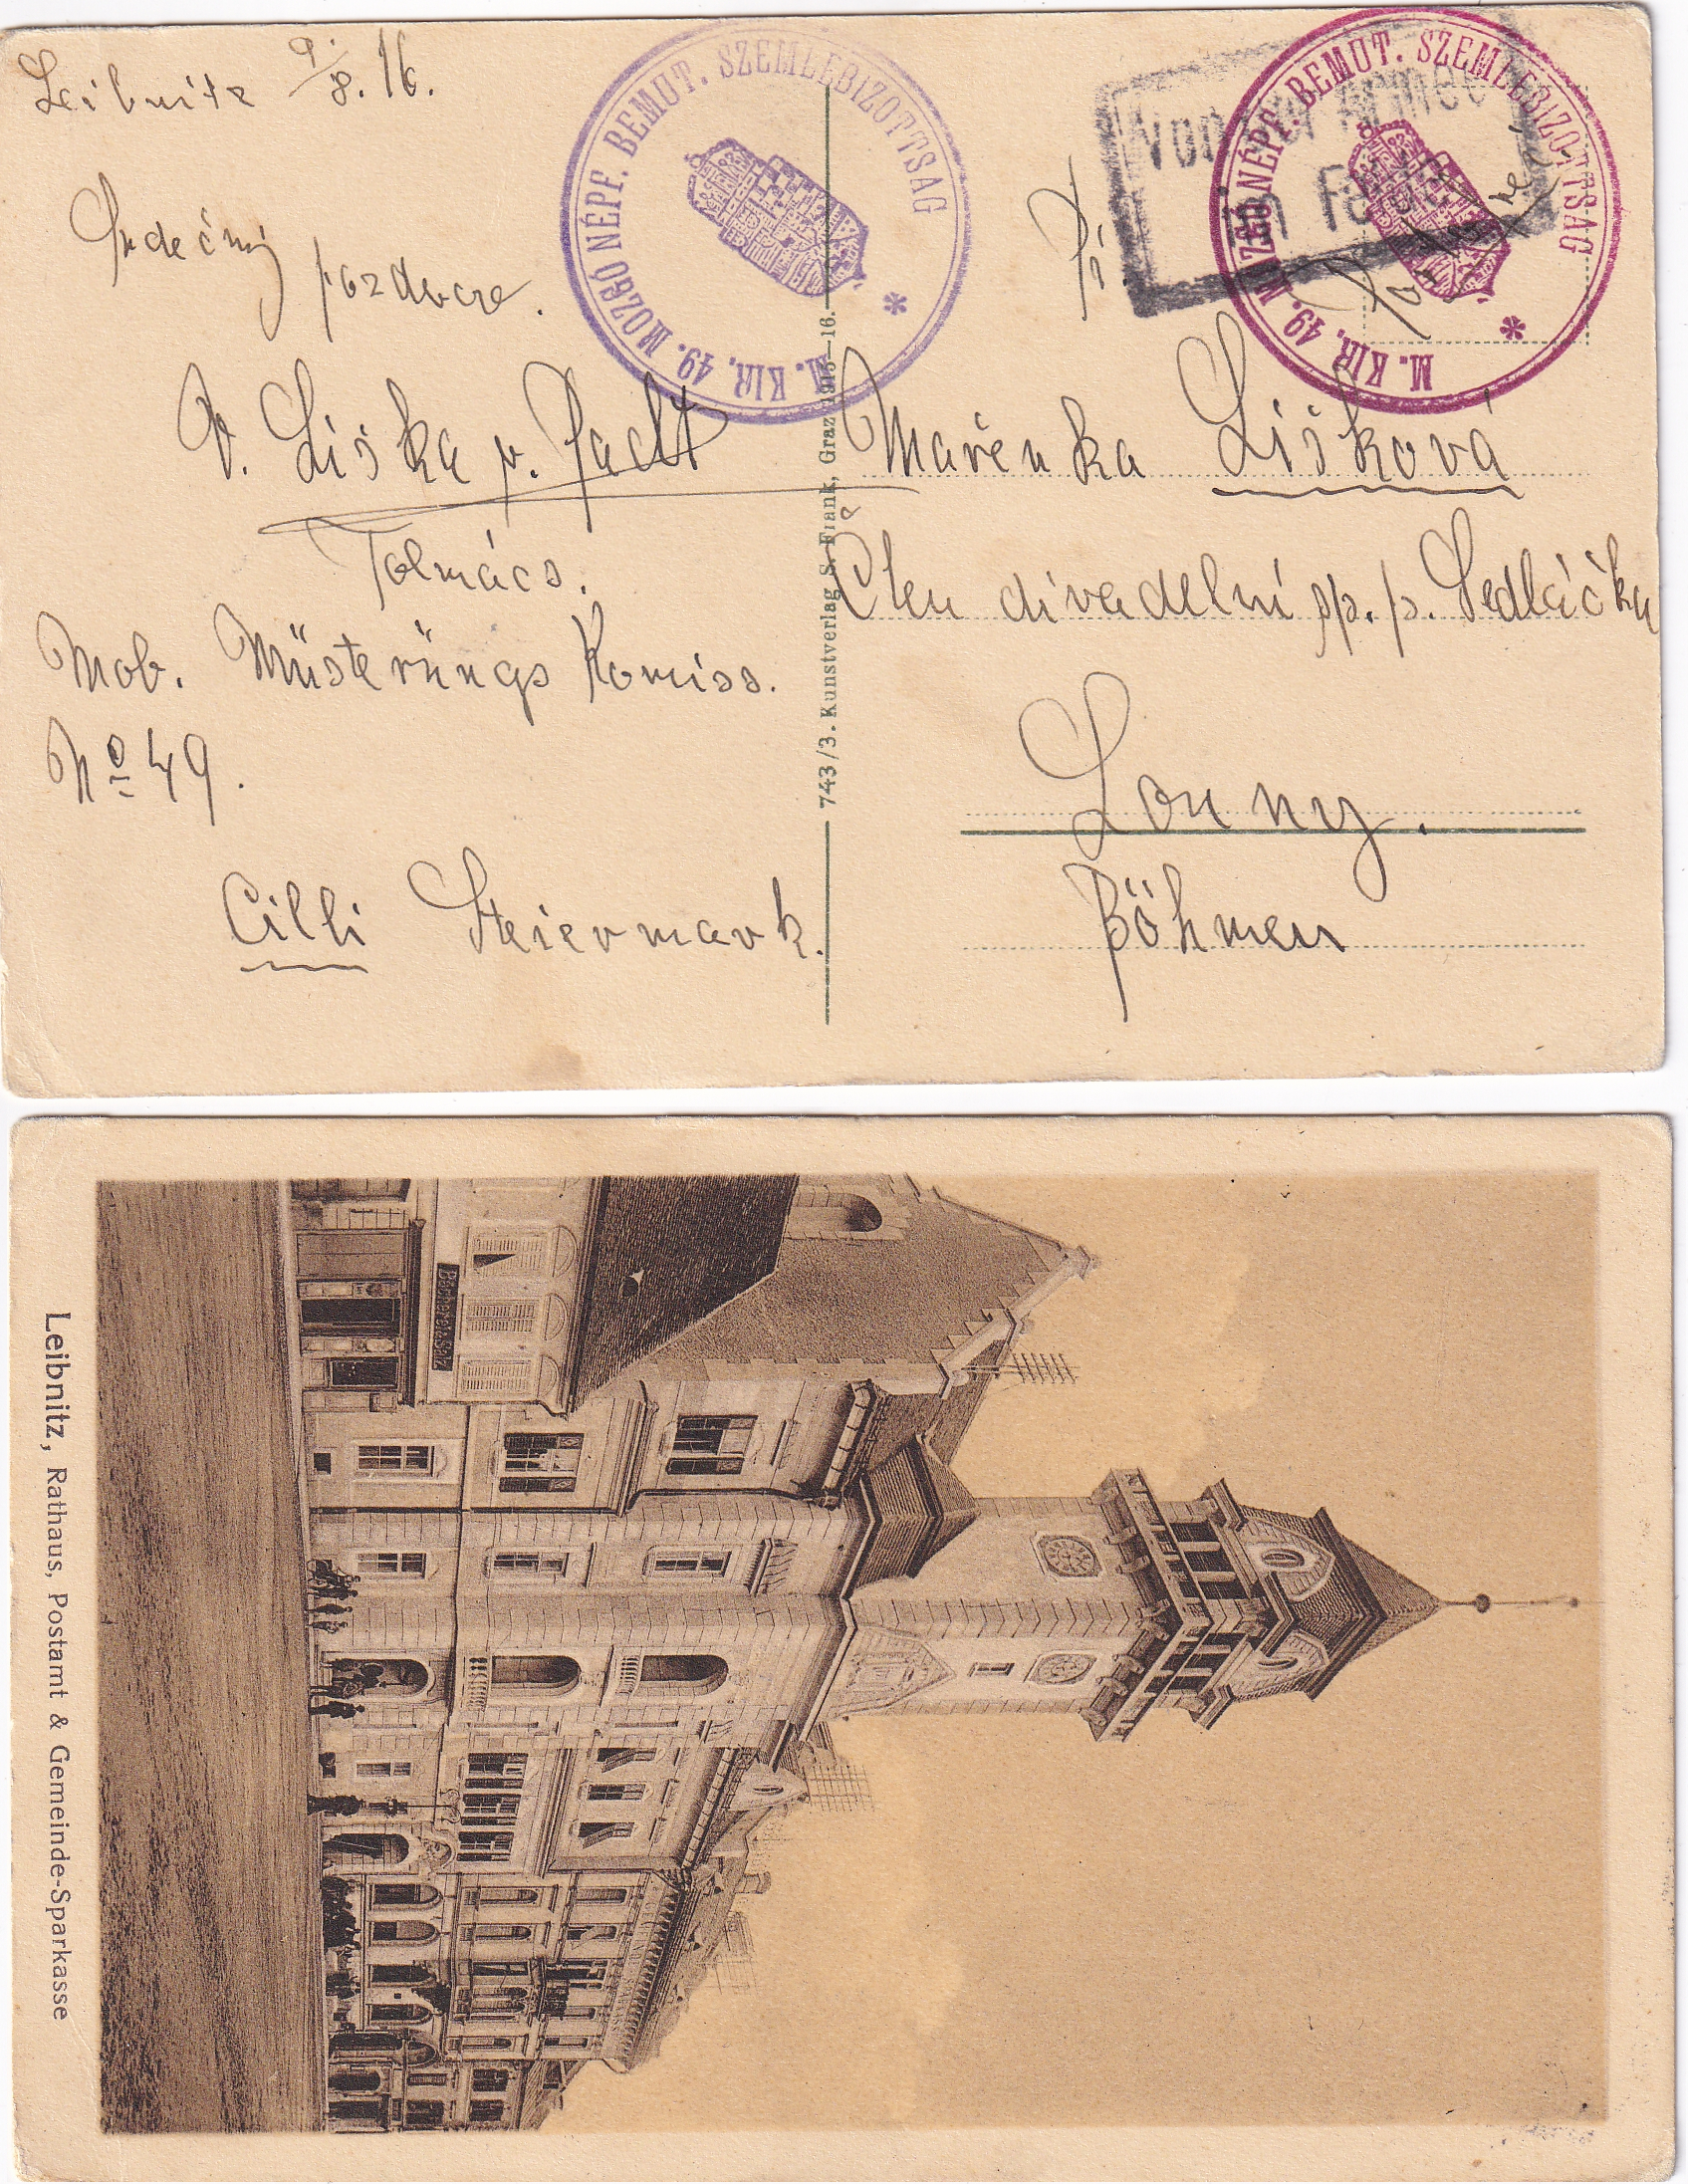 Leibnitz 9./8. 16.
Srdečný
pozdrav
V. Liška
Tolmács.
Mob. Müsterüngs Komiss.
No 49.
Cilli Steiermark.
M. KIR. 49. MOZGÓ NÉPF. BEMUT. SZEMLEBIZOTTSAG *
743/3. Kunstverlag S. Frank, Graz 1915—16.
Von der Armee
im Felde
M. KIR. 49. MOZGÓ NÉPF. BEMUT. SZEMLEBIZOTTSAG *
Mařenka Lišková
Člen divadelní sp. p. Sedláčka
Louny.
Böhmen
Leibnitz, Rathaus, Postamt & Gemeinde-Sparkasse